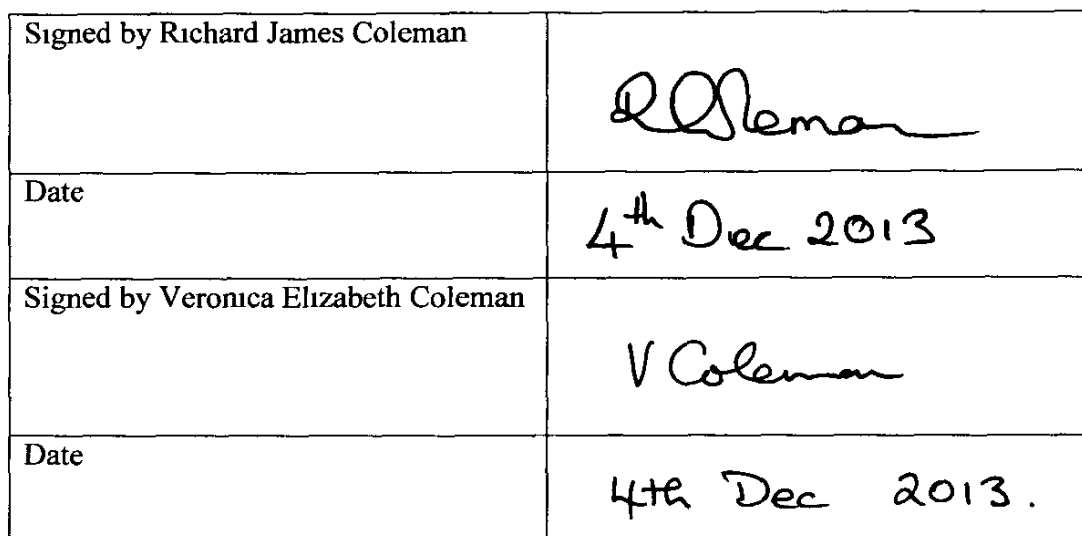 Signed by Richard James Coleman
R Coleman
Date
4th Dec 2013
Signed by Veronica Elizabeth Coleman
V Coleman
Date
4th Dec 2013.